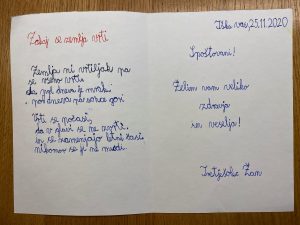 Zakaj se zemlja vrti
Zemlja ni vrtiljak pa
se vseeno vrti
da pol dneva je mrak
pol dneva pa sonce gori
Vrti se počasi
da v glavi se ne zvrti
in se zamenjajo letni časi
nikomor se ji ne mudi
Iška vas, 25.11.2020
Spoštovani!
Želim vam veliko
zdravja
in veselja!
Tretješolec Žan